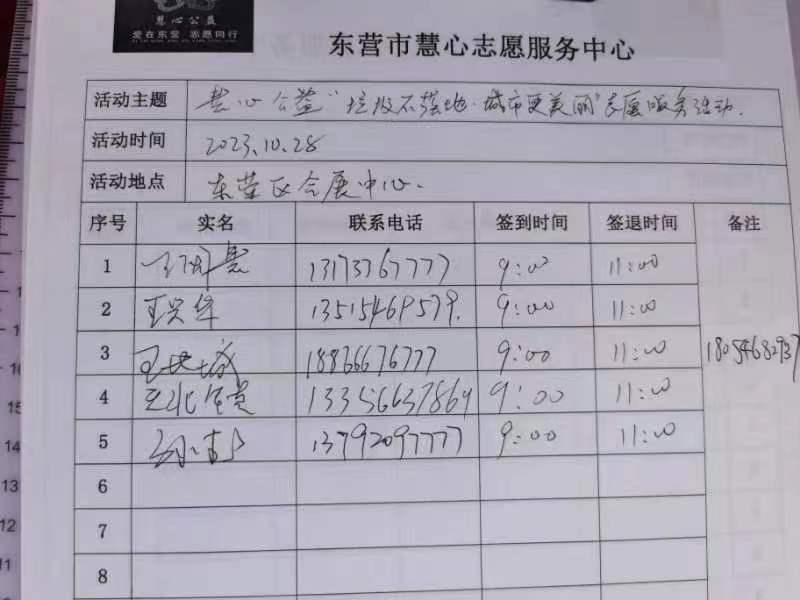 慧心公益
爱在东营 志愿同行
东营市慧心志愿服务中心
活动主题 慧心公益"垃圾不落地·城市更美丽"志愿服务活动.
活动时间 2023.10.28
活动地点 东营区会展中心.
序号 实名 联系电话 签到时间 签退时间 备注
1 13173767777 9:00 11:00
2 王兴华 13515469579. 9:00 11:00
3 18866676777 9:00 11:00 18054682937
4 13356637864 9:00 11:00
5 13792097777 9:00 11:00
6
7
8